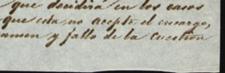 que decidirá en los casos
que esta no acepte el encargo,
amen y fallo de la cuestion